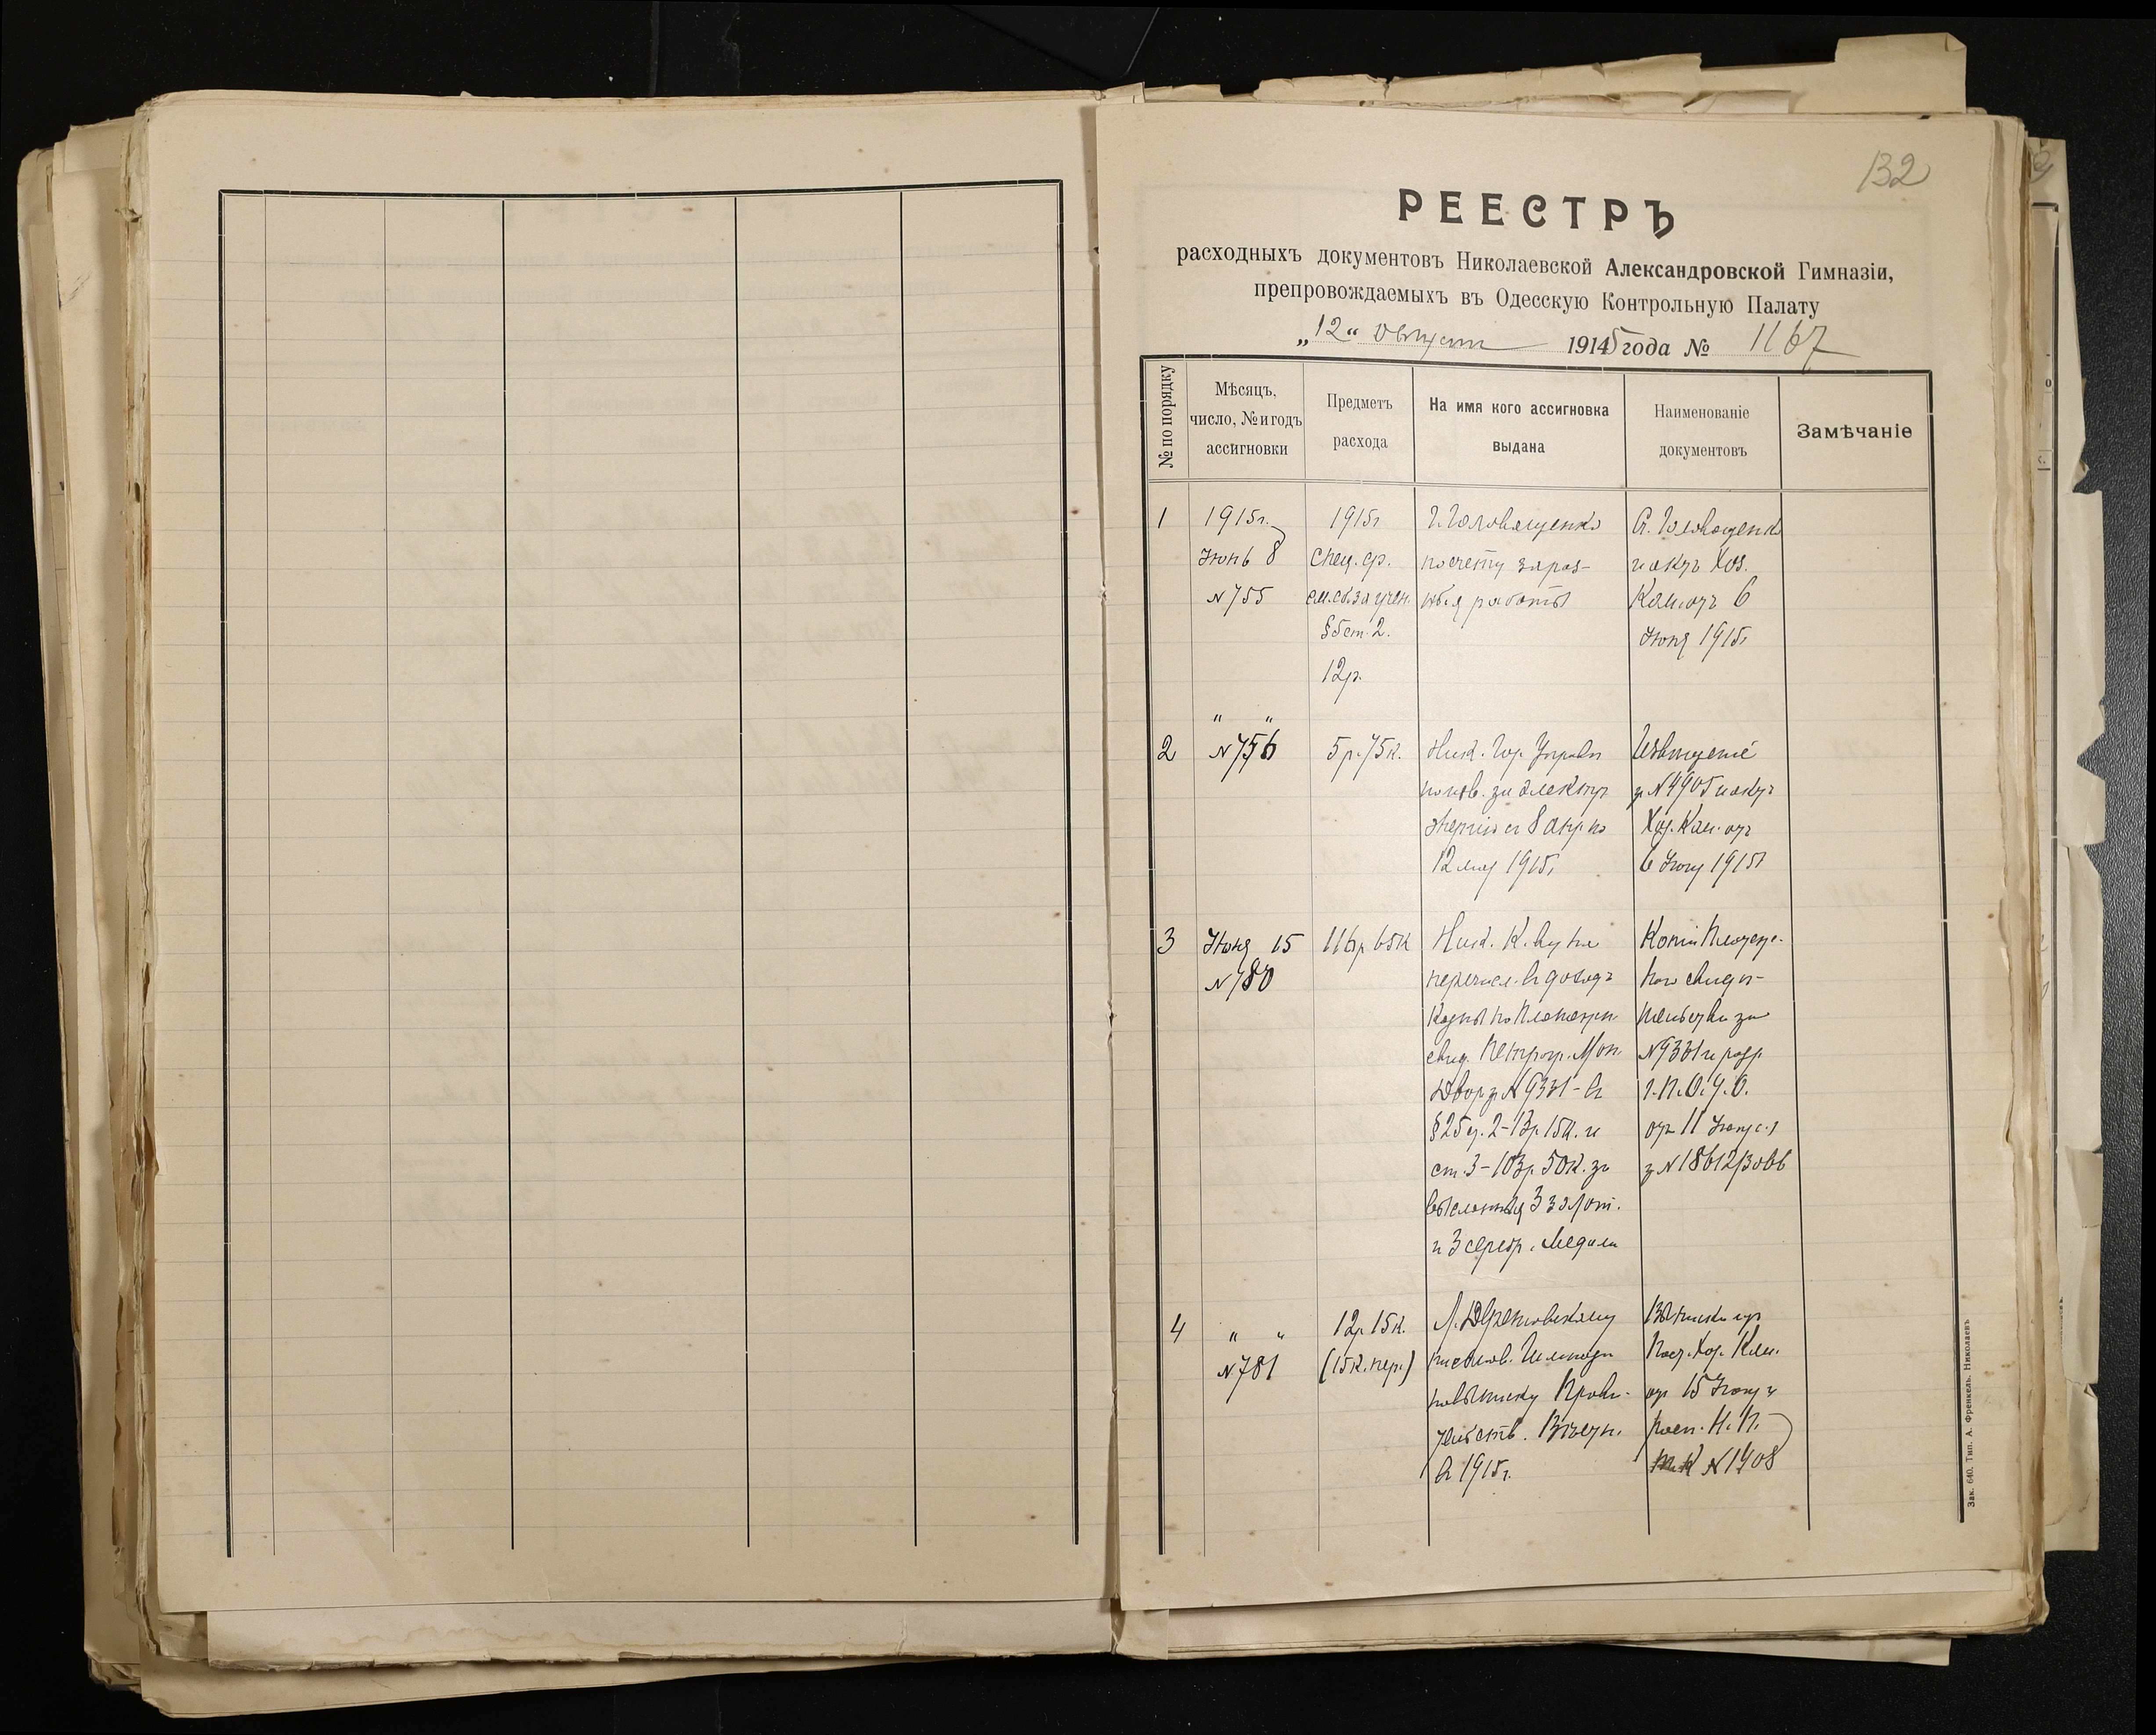 132
РЕЕСТРЪ
расходныхъ документовъ Николаевской Александровской Гимназіи,
препровождаемыхъ въ Одесскую Контрольную Палату
„12“ августа 1915 года № 1167
№ по порядку
Мѣсяцъ, число, № и годъ ассигновки
Предметъ расхода
На имя кого ассигновка выдана
Наименованіе документовъ
Замѣчаніе
1
1915г.
Іюнь 8
№ 755
1915г
спец. ср.
§5 ст. 2.
12р.
Головащенко
по счету за раз-
ныя работы
Сч. Головащенко
и актъ Хоз.
Ком. отъ 6
Іюня 1915г
2
" "
№ 756
5р. 75к.
Ник. Гор. Управ
по изв. за электр
энергію съ 8 апр. по
12 мая 1915г
Извѣщеніе
з. № 4905 и актъ
Хоз. Ком. отъ
6 Іюня 1915г
3
Іюня 15
№ 780
116р 65к
Ник. К-ву на
перечисл. въ доходъ
казны по
свид. Петрогр. Мон.
Двор з. № 9331 - въ
§25 ст. 2 - 13р. 15к. и
ст. 3 - 103р. 50к. за
высланныя 3 золот.
и 3 серебр. медали
Копія
свидѣ-
тельства за
№ 9331 и разр
г. П. О. У. О.
отъ 11 Іюня с. г
з. № 18612/3066
4
" "
№ 781
12р. 15к.
(15к. пер.)
письмов.
по выписку Прави-
тельств. Вѣстн.
въ 1915г.
Выписка изъ
Пост. Хоз. Ком.
отъ 15 Іюня и
росп. Н. П.
Т. К № 1408
Зак. 640. Тип. А. Френкель. Николаевъ